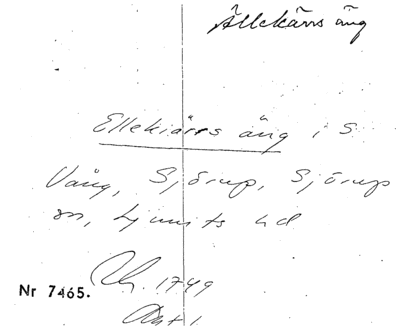 Ällekärrs äng
Ellekiärrs äng i S
Vång, Sjörup, Sjörup
sn, Ljunits hd
Lh. 1749
Akt 1
Nr 7465.